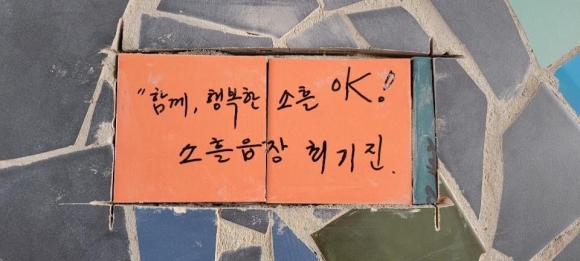 "함께, 행복한 소흘 OK!
소흘읍장 최기진.